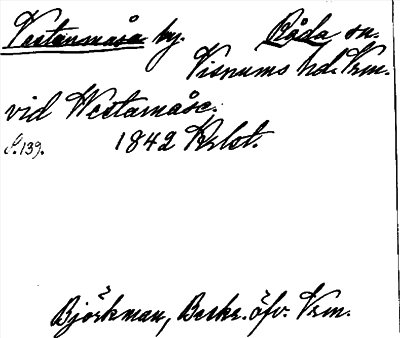 Vestanmåsa by. Råda sn.
Visnums hd. Vrm.
vid Westamåse.
S. 139. 1842 Krlst.
Björkman, Beskr. öfv. Vrm.